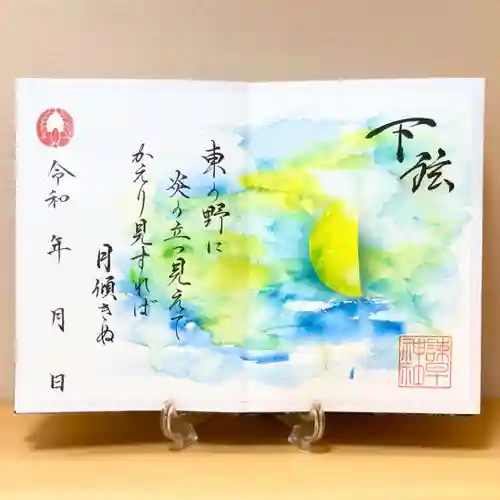 下弦
東の野に
炎の立つ見えて
かえり見すれば
月傾きぬ
令和 年 月 日
諫早
神社